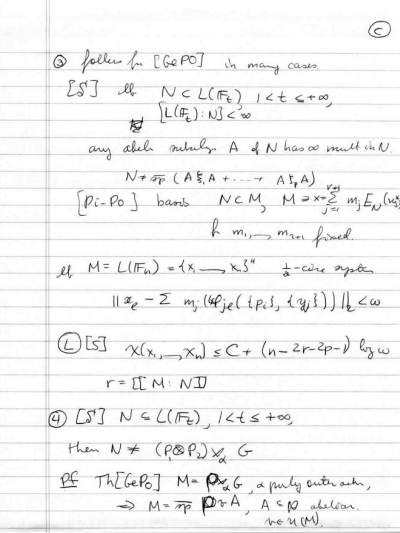 C
③ follows fr [GePo] in many cases.
[S] If N ⊂ L(F_t), 1 < t ≤ +∞,
[L(F_t) : N] < ∞
any abelian subalg. A of N has ∞ mult in N.
N ≠ sp (A ξ₁ A + ... + A ξ_p A)
[Pi-Po] basis N ⊂ M, M ∋ x = Σ_{j=1} m_j E_N(
m_1, ... fixed.
If M = L(F_n) = {x_1, ..., x_n}" system
|| x_e − Σ m_j φ_je ({p_i}, {y_j}) ||_2 < ω
Ⓛ [S] χ(x_1, ..., x_n) ≤ C + (n − 2r − 2p − 1) log ω
r = [[M : N]]
④ [S] N ⊆ L(F_t), 1 < t ≤ +∞,
then N ≠ (P_1 ⊗ P_2) ⋊_α G
Pf Th [GePo] M = P ⋊_α G, α purly outer actn,
⇒ M = sp P v A, A ⊂ P abelian.
v ∈ U(M).